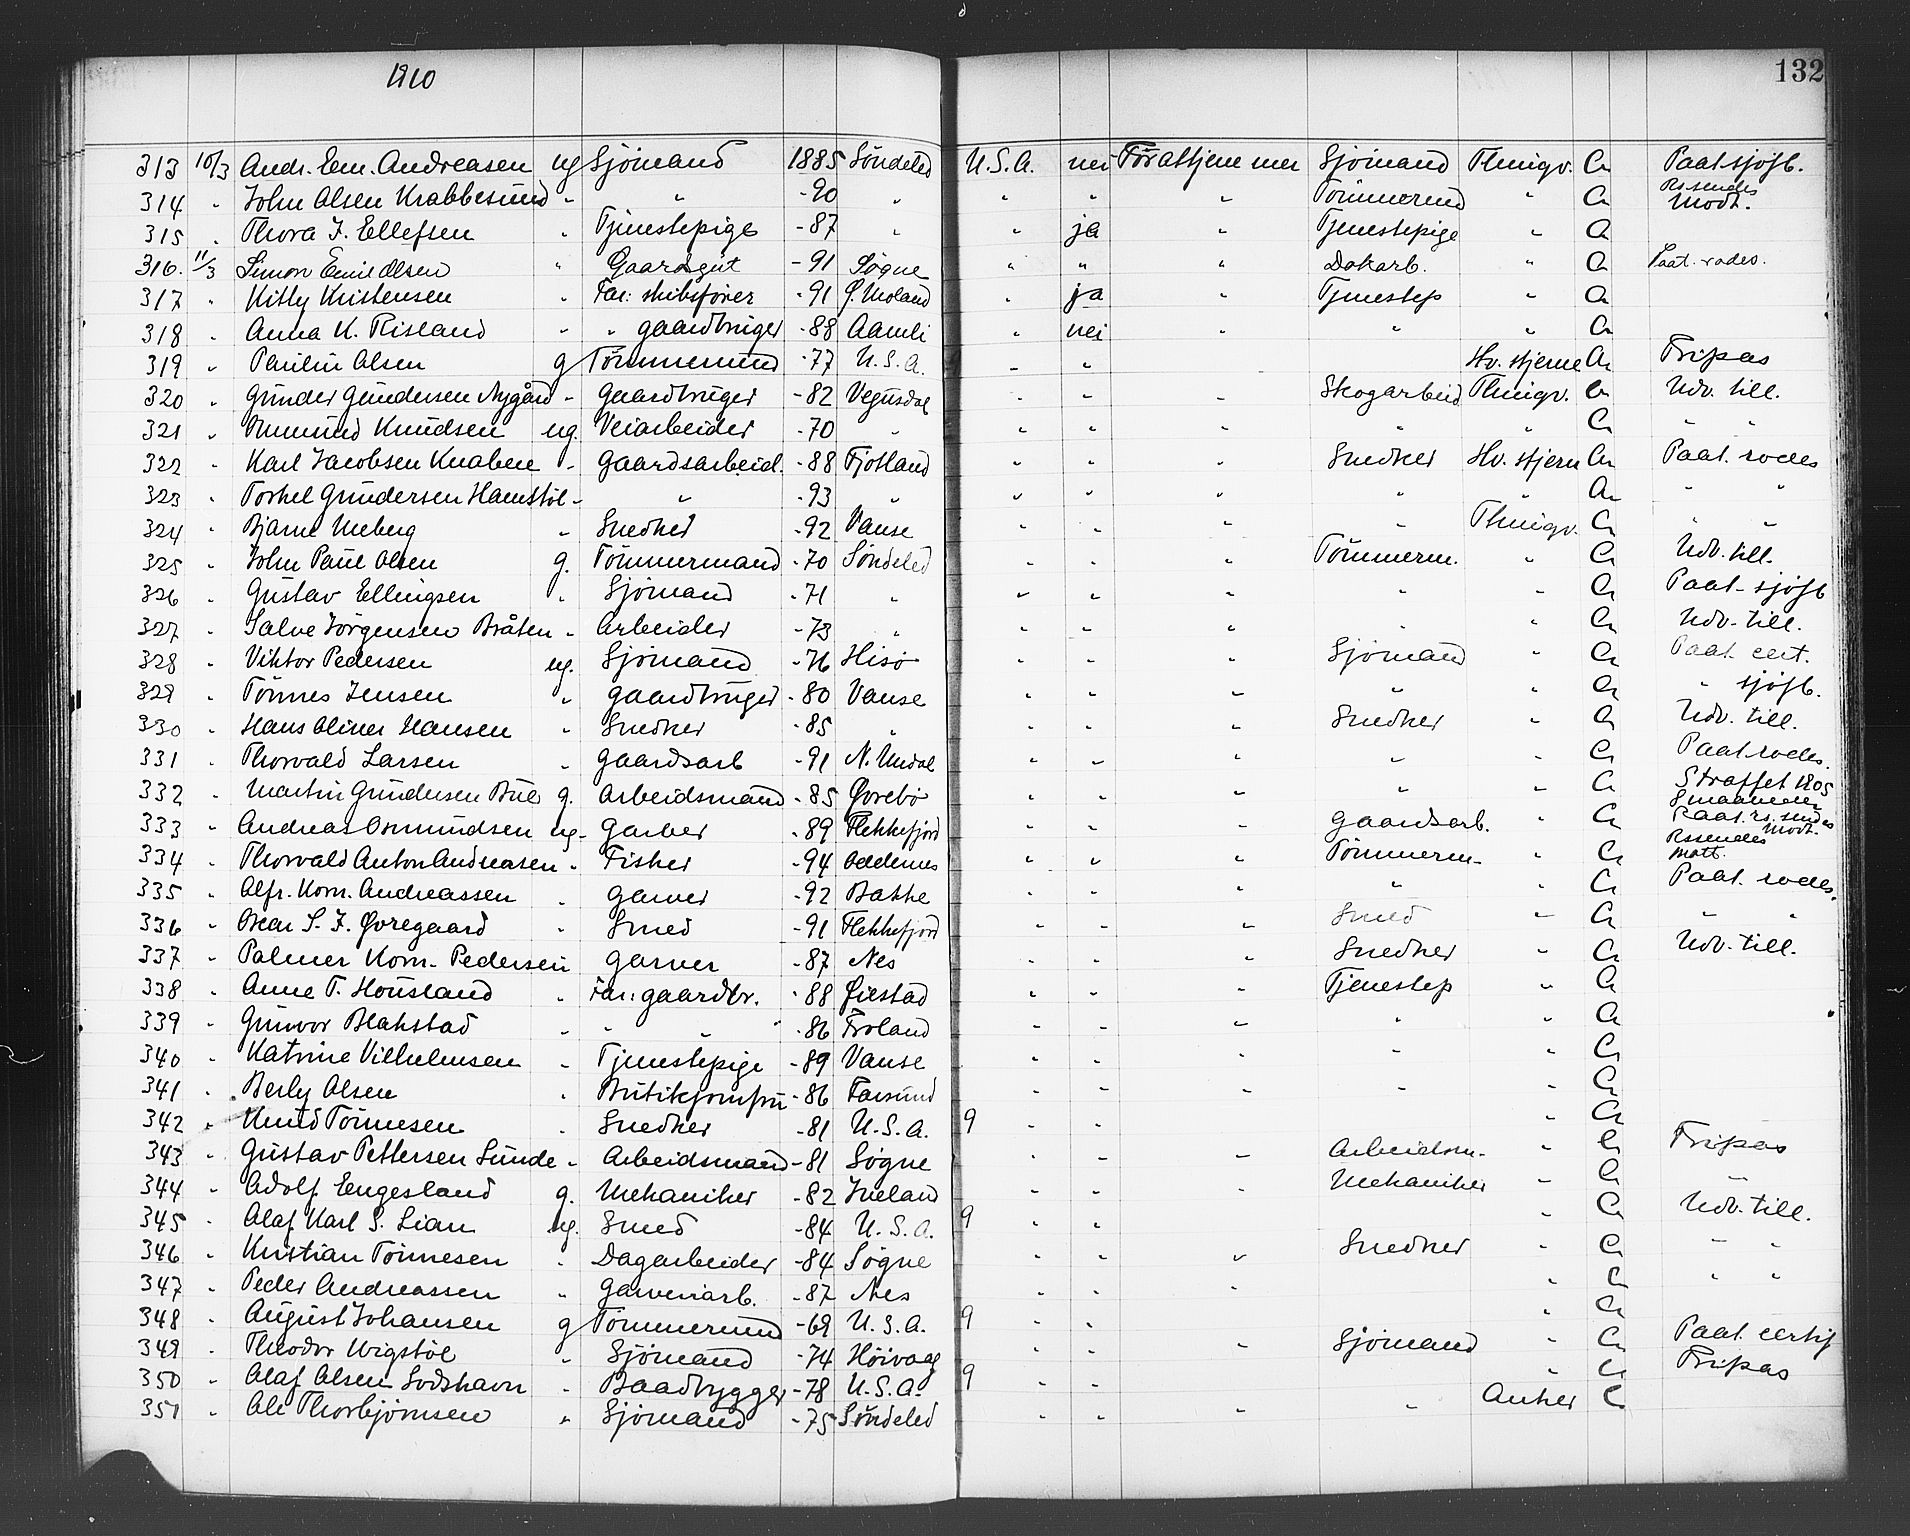 1910
132
313 10/3 Andr. Em. Andreasen ug Sjömand 1885 Söndeled U.S.A. nei For at tjene mer Sjömand Thingv. A Paat. sjöfb.
314 " John Olsen Krabbesund " " -90 " " " " Tömmermd " A Rs. sendes Modt.
315 " Thora J. Ellefsen " Tjenestepige -87 " " ja " Tjenestepige " A
316. 11/3 Simon Emil Olsen " Gaardsgut -91 Søgne " " " Dokarb. " A Paat. rodes.
317 " Kitty Kristensen " Far: skibsfører -91 Ø. Moland " ja " Tjenestep " A
318 " Anna K. Risland " " gaardbruger -88 Aamli " nei " " " A
319 " Paulin Olsen g Tömmermd -77 U.S.A. " " Hv. stjerne A Fripas
320 " Gunder Gundersen Nygård " Gaardbruger -82 Vegusdal " " " Skogarbeid Thingv. A Udv. till.
321 " Knudsen ug. Veiarbeider -70 " " " " " " A " "
322 " Karl Jacobsen Knaben " gaardsarbeid. -88 Fjotland " " " Snedker Hv. stjern A Paat. rodes
323 " Torkel Gundersen Hamstöl " " -93 " " " " " " A " "
324 " Bjarne Meberg " Snedker -92 Vanse " " " " Thingv. A " "
325 " John Paul Olsen g. Tömmermand -70 Söndeled " " " Tömmerm. " A Udv. till.
326 " Gustav Ellingsen " Sjömand -71 " " " " " " A Paat. sjöfb
327 " Salve Jörgensen Bråten " Arbeider -73 " " " " " " A Udv. till.
328 " Viktor Pedersen ug. Sjömand -76 Hisö " " " Sjömand " A Paat. cert.
329 " Tönnes Jensen " gaardbruger -80 Vanse " " " " " A " sjöfb.
330 " Hans Oliner Hansen " Snedker -85 " " " " Snedker " A Udv. till.
331 " Thorvald Larsen " gaardsarb -91 N. Undal " " " " " A Paat. rodes.
332 " Martin Gundersen Bue g. Arbeidsmand -85 Øvrebö " " " " " A Straffet 1905
333 " Andreas Osmundsen ug. Garber -89 Flekkefjord " " " gaardsarb. " A Paat. rs. sendes Modt.
334 " Thorvald Anton Andreasen " Fisker -94 Oddernes " " " Tömmerm. " A Rssendes Mott.
335 " Alfr. Korn. Andreassen " garver -92 Bakke " " " " " A Paat. rodes.
336 " Oscar S. F. Øvregaard " Smed -91 Flekkefjord " " " Smed " A " "
337 " Palmer Korn. Pedersen " garver -87 Nes " " " Snedker " A Udv. till.
338 " Anne T. Housland " Far: gaardbr. -88 Øiestad " " " Tjenestep " A
339 " Gunvor Blakstad " " " -86 Froland " " " " " A
340 " Katrine Vilhelmsen " Tjenestepige -89 Vanse " " " " " A
341 " Berly Olsen " Butikjomfru -86 Farsund " " " " " A
342 " Knud Tönnesen " Snedker -81 U.S.A. 9 " " " A
343 " Gustav Pettersen Lunde " Arbeidsmand -81 Søgne " " " Arbeidsm. " A Fripas
344 " Adolf Engesland g. Mekaniker -82 Iveland " " " Mekaniker " A "
345 " Olaf Karl S. Lian ug. Smed -84 U.S.A. 9 " " " A Udv. till.
346 " Kristian Tönnesen " Dagarbeider -84 Søgne " " " Snedker " A " "
347 " Peder Andreassen " Garveriarb. -87 Nes " " " " A " "
348 " August Johansen g Tömmermd -69 U.S.A. 9 " " " A
349 " Theodor Wigstöl " Sjömand -74 Höivaag " " " Sjömand " A Paat. certif
350 " Olaf Olsen Lodshavn " Baadbygger -78 U.S.A. 9 " " " A Fripas
351 " Ole Thorbjörnsen " Sjömand -75 Söndeled " " " " Anker C